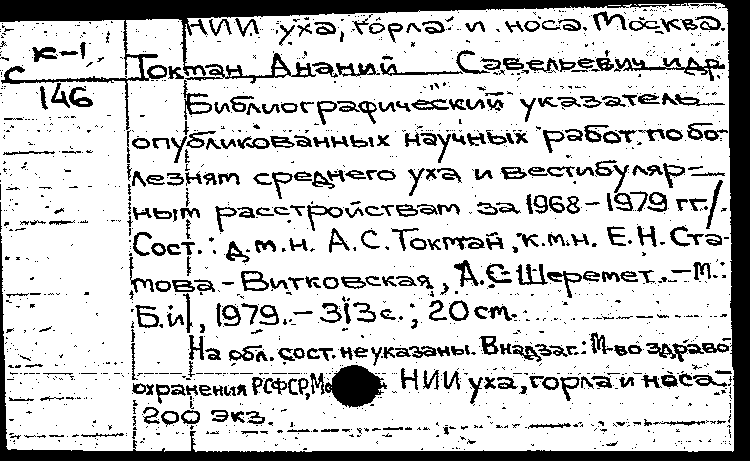 НИИ уха, горла и носа. Москва.
к-1
с
146
Токман, Ананий Савельевич и др.
Библиографический указатель
опубликованных научных работ по бо-
лезням среднего уха и вестибуляр-
ным расстройствам за 1968-1979 гг./
Сост.: д.м.н. А.С. Токман, к.м.н. Е.Н. Ста-
мова-Витковская, А.С Шеремет. - М.:
Б.и., 1979. - 313 с.; 20 см.
На обл. сост. не указаны. В надзаг.: М-во здраво
охранения РСФСР, НИИ уха, горла и носа
200 экз.